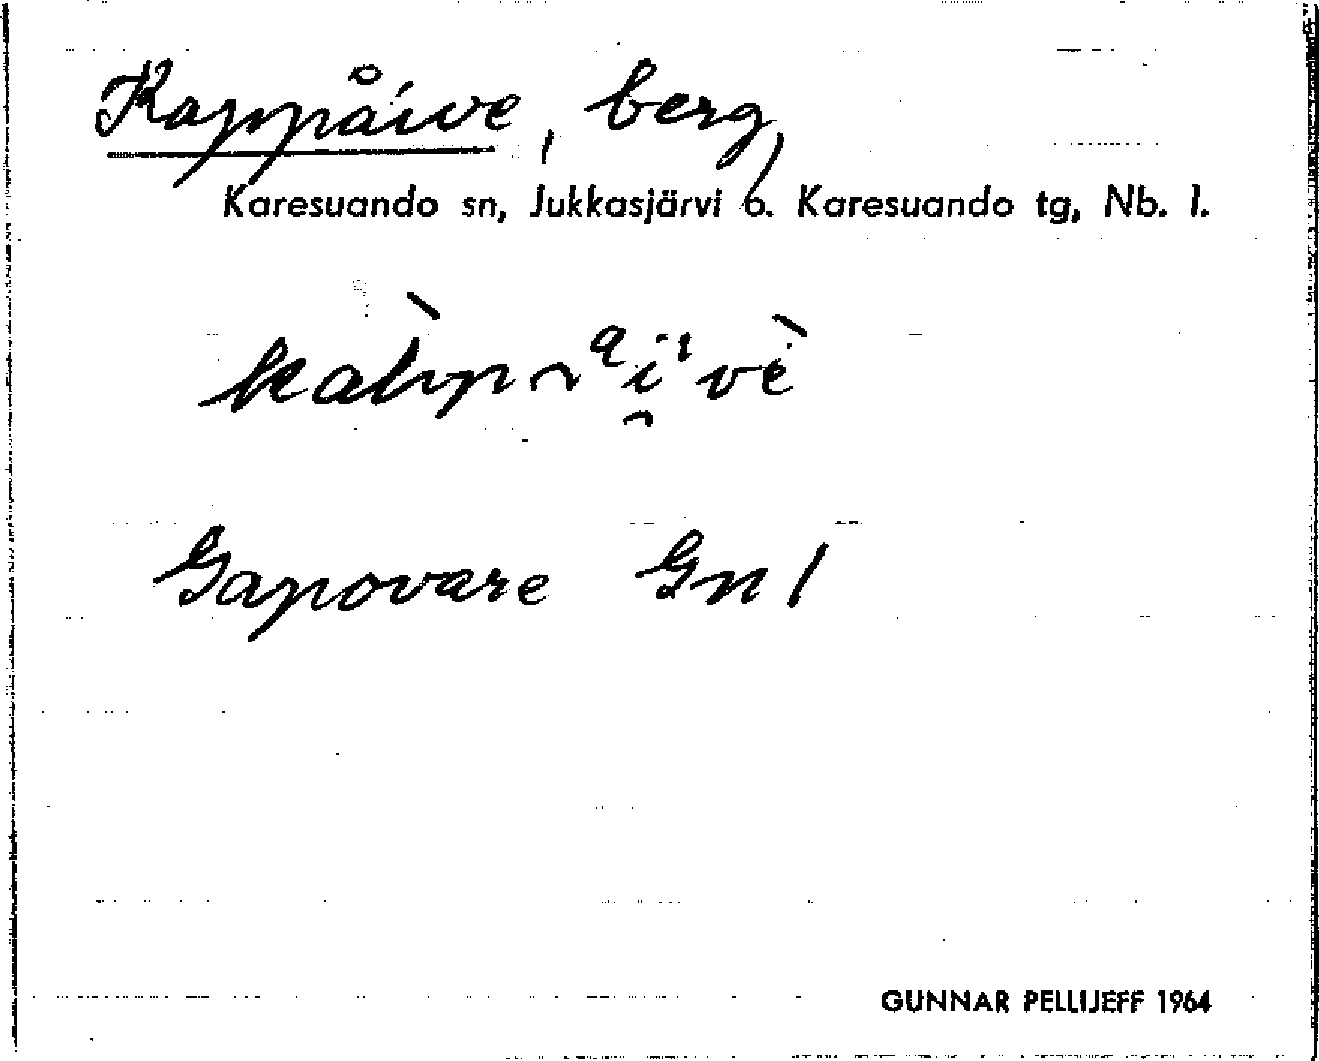 Kappåive, berg,
Karesuando sn, Jukkasjärvi ö. Karesuando tg, Nb. l.
Gapovare Gn 1
GUNNAR PELLIJEFF 1964